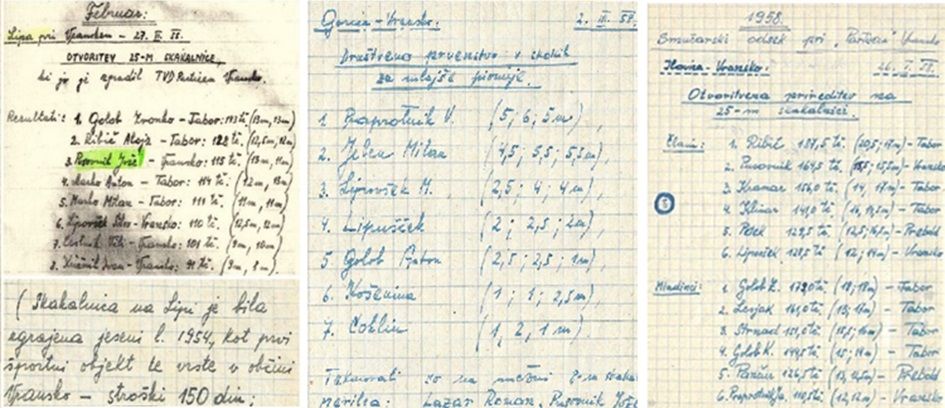 Februar:
Lipa pri Vranskem - 27. II. 55.
OTVORITEV 25-M SKAKALNICE,
ki jo je zgradil TVD Partizan Vransko.
Rezultati: 1. Golob Zvonko - Tabor: 143 tč. (13m, 13m)
2. Ribič Alojz - Tabor: 122 tč. (12,5m, 12m)
3. Pusovnik Jože - Vransko: 115 tč. (13m, 11m)
4. Marko Anton - Tabor: 114 tč. (12m, 13m)
5. Marko Milan - Tabor: 111 tč. (11m, 11m)
6. Lipovšek Silvo - Vransko: 110 tč. (10,5m, 12m)
7. - Vransko: 101 tč. (9m, 10m)
8. Ivan - Vransko: 91 tč. (9m, 8m)
(Skakalnica na Lipi je bila
zgrajena jeseni l. 1954, kot prvi
športni objekt te vrste v občini
Vransko - stroški 150 din;
Gorica-Vransko. 2. III. 58.
Društveno prvenstvo v skokih
za mlajše pionirje.
1. Praprotnik V. (5; 6; 5m),
2. Ježen Milan (4,5; 5,5; 5,5m),
3. Lipovšek M. (2,5; 4; 4m),
4. Lipušček (2; 2; 2m)
5. Golob Anton (2,5; 2,5; 1m),
6. Košenina (1; 1; 2,5m),
7. Coklin (1, 2, 1m),
Tekmovali so na
merilca: Lazar Roman, Pusovnik Jože
1958.
Smučarski odsek pri "Partizan" Vransko
Ilovica-Vransko. 26. I. 58.
Otvoritvena prireditev na
25-m skakalnici.
Člani: 1. Ribič 187,5 tč. (20,5; 19m) - Tabor
2. Pusovnik 164,5 tč. 15,5m) - Vransko
3. Kramar 156,0 tč. (14, 17m) - Tabor
4. Klinar 149,0 tč. (14, 14,5m) - Tabor
5. Potek 129,5 tč. (12,5; 16m) - Prebold
6. Lipovšek 128,5 tč. (12; 12m) - Vransko
Mladinci: 1. Golob Z. 179,0 tč. (18; 18m) - Tabor
2. Lesjak 161,0 tč. (15; 17m) - Tabor
3. Strnad 151,0 tč. (15,5; 16m) - Tabor
4. Golob K. 149,5 tč. (15; 14m) - Tabor
5. Pančur 126,5 tč. (13, 12,5m) - Prebold
6. Praprotnik 110,5 tč. (12, 12m) - Vransko